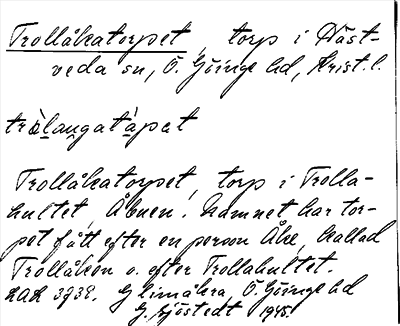 Trollåkatorpet, torp i Häst-
veda sn, Ö. Göinge hd, Krist. l.
Trollåkatorpet, torp i Trolla-
hultet, Åbuen. Namnet har tor-
pet fått efter en person Åke, kallad
Trollåken o. efter Trollahultet.
LAL 3732. Glimåkra, Ö. Göinge hd
G. Sjöstedt 1945.